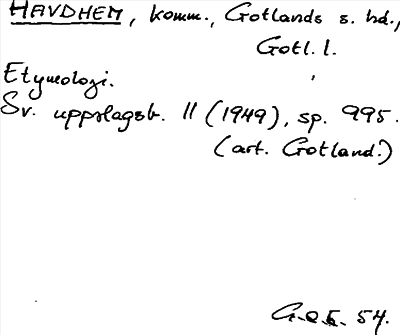 HAVDHEM, komm., Gotlands s. hd.,
Gotl. l.
Etymologi.
Sv. uppslagsb. 11 (1949), sp. 995.
(art. Gotland.)
54.